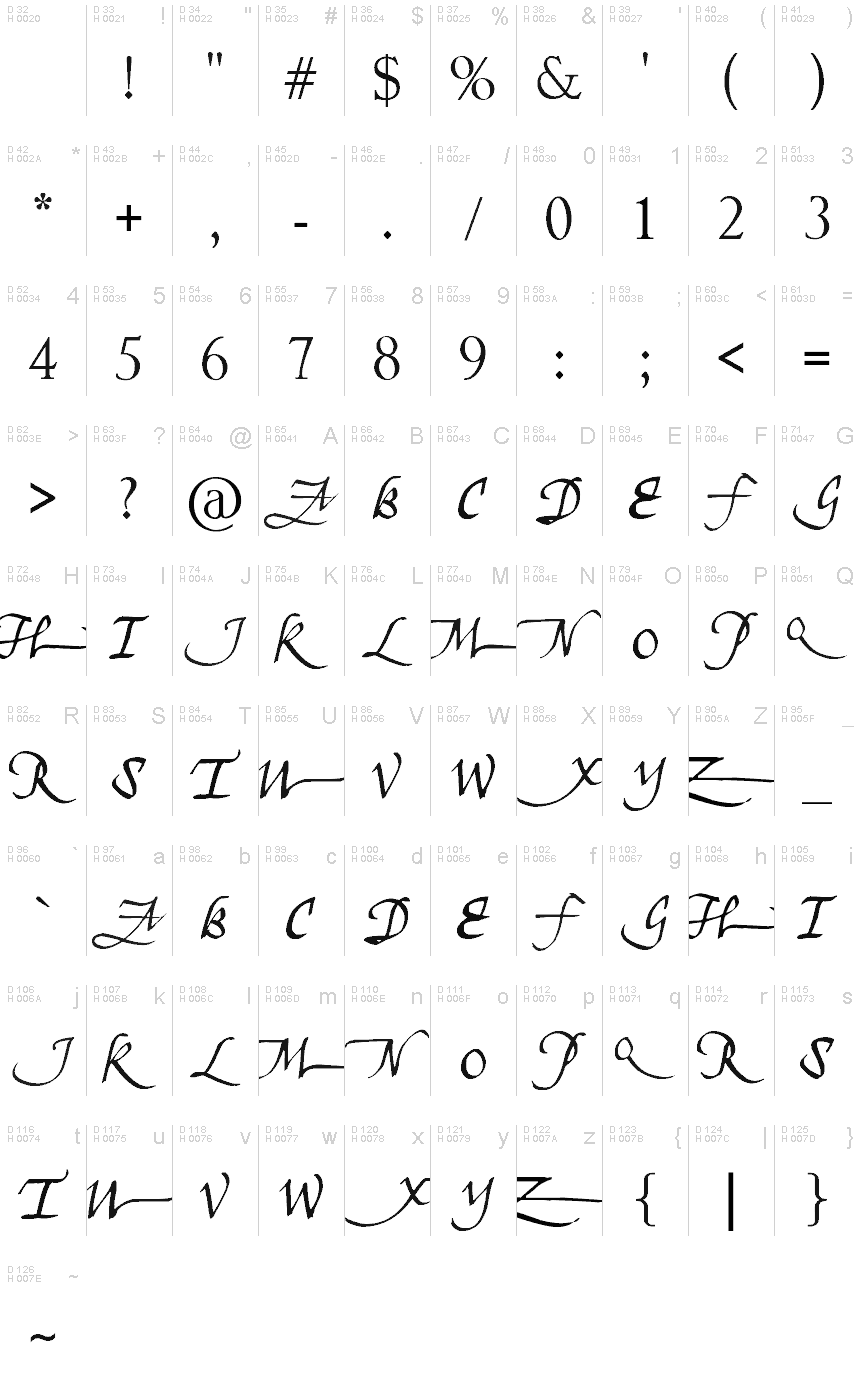 D 32 H 0020 D 33 H 0021 ! D 34 H 0022 " D 35 H 0023 # D 36 H 0024 $ D 37 H 0025 % D 38 H 0026 & D 39 H 0027 ' D 40 H 0028 ( D 41 H 0029 )
! " # $ % & ' ( )
D 42 H 002A * D 43 H 002B + D 44 H 002C , D 45 H 002D - D 46 H 002E . D 47 H 002F / D 48 H 0030 0 D 49 H 0031 1 D 50 H 0032 2 D 51 H 0033 3
* + , - . / 0 1 2 3
D 52 H 0034 4 D 53 H 0035 5 D 54 H 0036 6 D 55 H 0037 7 D 56 H 0038 8 D 57 H 0039 9 D 58 H 003A : D 59 H 003B ; D 60 H 003C < D 61 H 003D =
4 5 6 7 8 9 : ; < =
D 62 H 003E > D 63 H 003F ? D 64 H 0040 @ D 65 H 0041 A D 66 H 0042 B D 67 H 0043 C D 68 H 0044 D D 69 H 0045 E D 70 H 0046 F D 71 H 0047 G
> ? @ A B C D E F G
D 72 H 0048 H D 73 H 0049 I D 74 H 004A J D 75 H 004B K D 76 H 004C L D 77 H 004D M D 78 H 004E N D 79 H 004F O D 80 H 0050 P D 81 H 0051 Q
H I J K L M N O P Q
D 82 H 0052 R D 83 H 0053 S D 84 H 0054 T D 85 H 0055 U D 86 H 0056 V D 87 H 0057 W D 88 H 0058 X D 89 H 0059 Y D 90 H 005A Z D 95 H 005F _
R S T U V W X Y Z _
D 96 H 0060 ` D 97 H 0061 a D 98 H 0062 b D 99 H 0063 c D 100 H 0064 d D 101 H 0065 e D 102 H 0066 f D 103 H 0067 g D 104 H 0068 h D 105 H 0069 i
` A B C D E F G H I
D 106 H 006A j D 107 H 006B k D 108 H 006C l D 109 H 006D m D 110 H 006E n D 111 H 006F o D 112 H 0070 p D 113 H 0071 q D 114 H 0072 r D 115 H 0073 s
J K L M N O P Q R S
D 116 H 0074 t D 117 H 0075 u D 118 H 0076 v D 119 H 0077 w D 120 H 0078 x D 121 H 0079 y D 122 H 007A z D 123 H 007B { D 124 H 007C | D 125 H 007D }
T U V W X Y Z { | }
D 126 H 007E ~
~